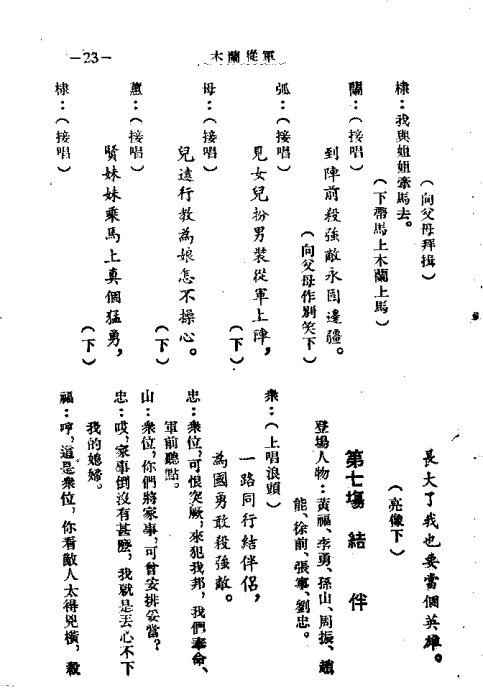 木蘭從軍
—23—
（向父母拜揖）
棣：我與姐姐牽馬去。
（下帶馬上木蘭上馬）
蘭：（接唱）
到陣前殺強敵永固邊疆。
（向父母作別笑下）
弧：（接唱）
見女兒扮男裝從軍上陣，
（下）
母：（接唱）
兒遠行教為娘怎不操心。
（下）
蕙：（接唱）
賢妹妹乘馬上真個猛勇，
（下）
棣：（接唱）
長大了我也要當個英雄。
（亮像下）
第七場　結伴
登場人物：黃福、李勇、孫山、周振、趙
能、徐前、張寧、劉忠。
衆：（上唱浪頭）
一路同行結伴侶，
為國勇敢殺強敵。
忠：衆位，可恨突厥，來犯我邦，我們奉命、
軍前聽點。
山：衆位，你們將家事，可曾安排妥當？
忠：哎，家事倒沒有甚麼，我就是丟心不下
我的媳婦。
福：哼，這是衆位，你看敵人太得兇橫，殺